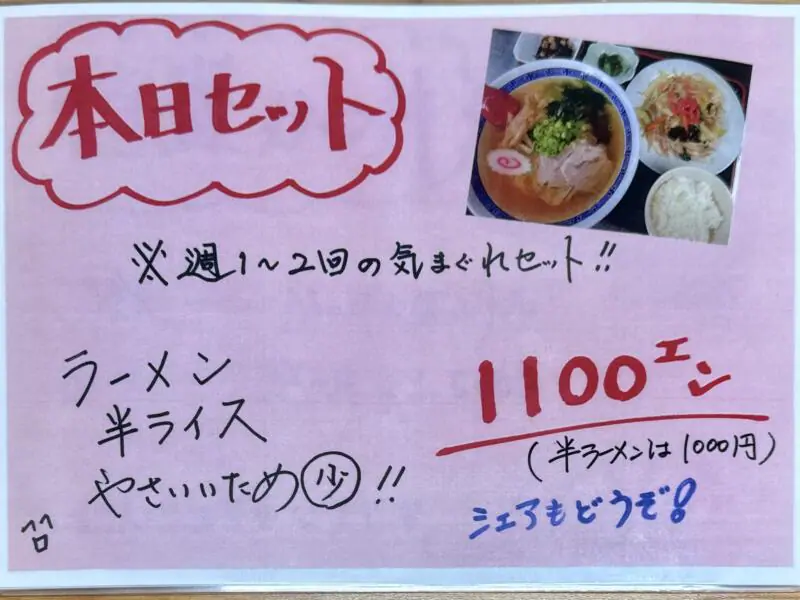 本日セット
※週1~2回の気まぐれセット!!
ラーメン
半ライス
やさいいため少!!
1100エン
(半ラーメンは1000円)
シェアもどうぞ!